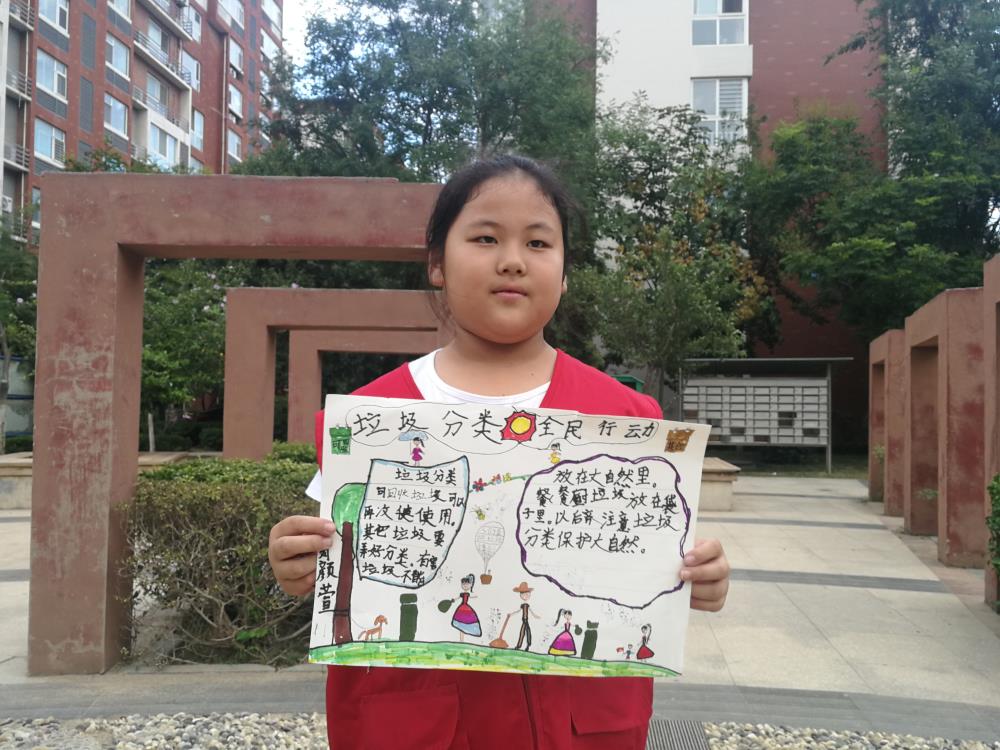 垃圾分类全民行动
垃圾分类
可回收垃圾可以
再次使用。
其它垃圾要
弄好分类。有害
垃圾不能
放在大自然里。
餐餐厨垃圾放在袋
子里。以后请注意垃圾
分类保护大自然。
颜萱